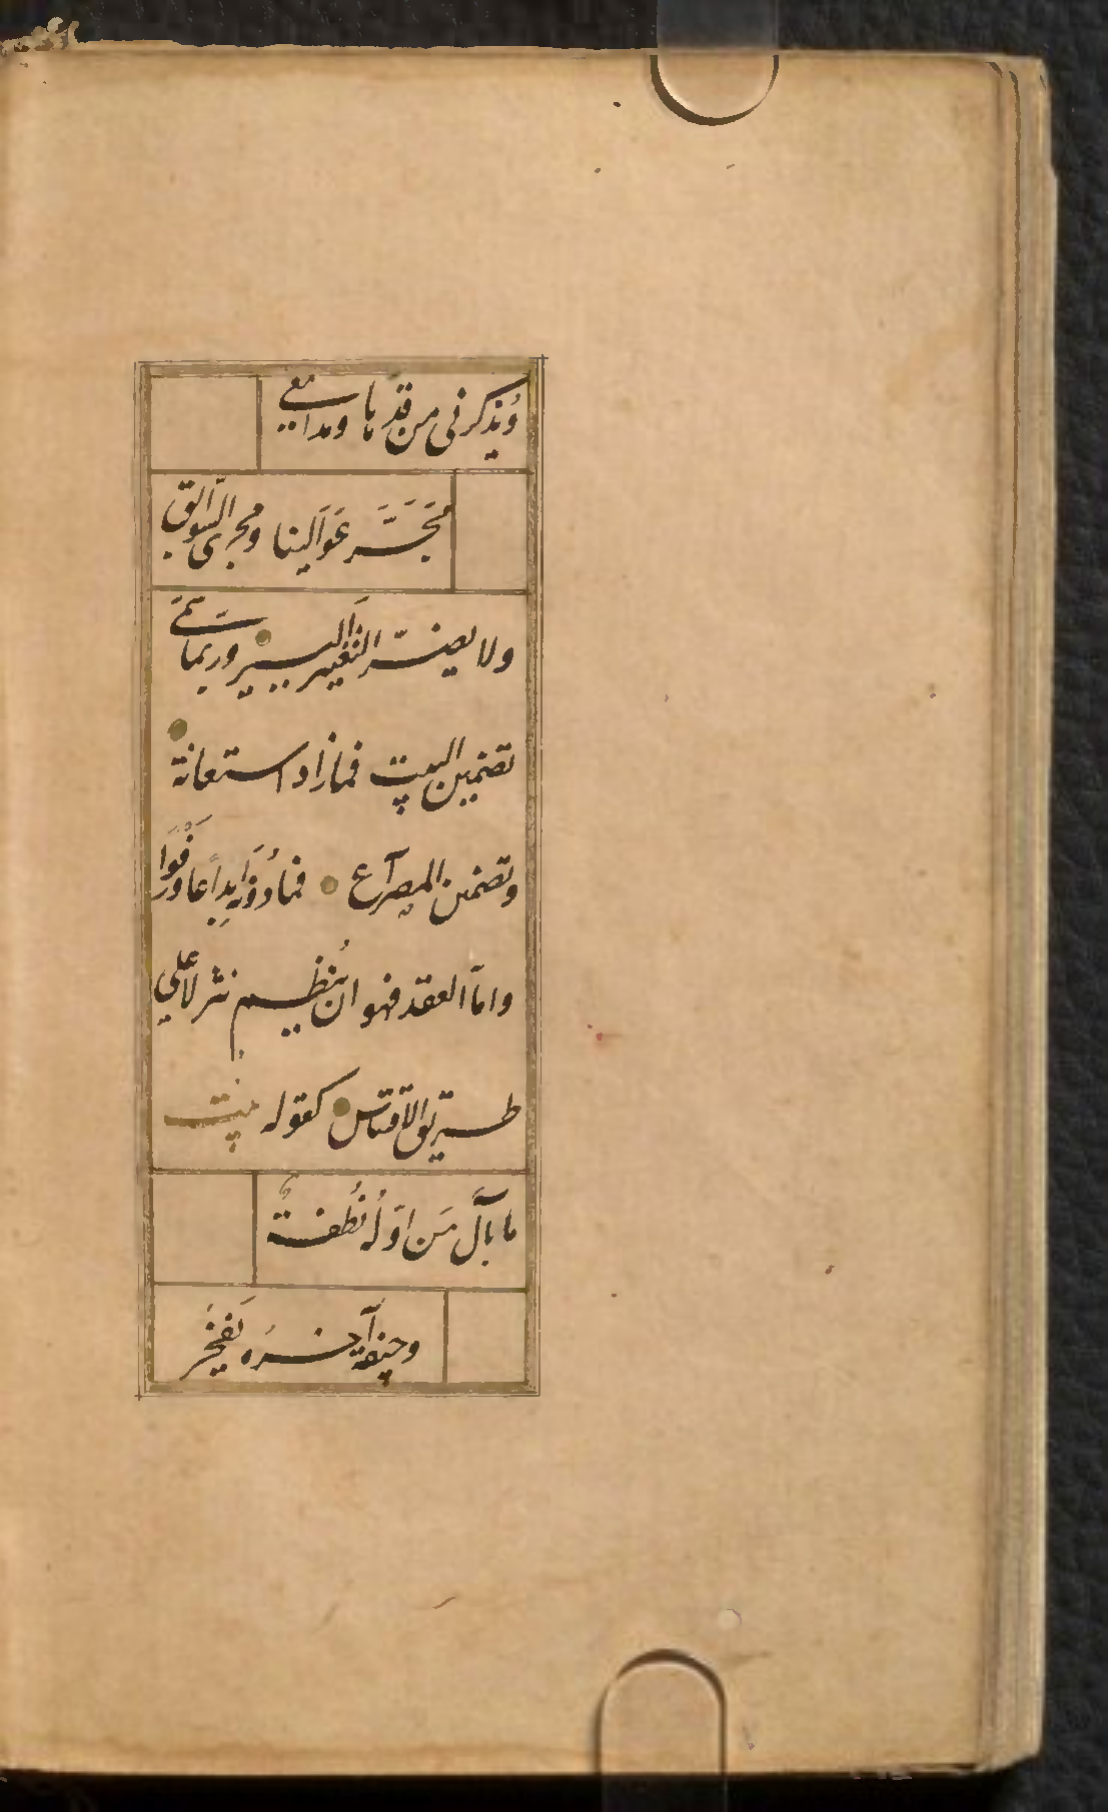 وُيذكرنى من قدها ومدامعي
مَجَرَّ عَوَالينا ومجرى السّوابق
ولا يضرّ التغيير اليسير وربما سمّى
تضمين البيت فما زاد استعانة
وتضمين المصراع فما دونه ايداعا ورفوا
واما العقد فهو ان يُنظم نثر لا على
طريق الاقتباس كقوله بيت
ما بال مَن اوّلُه نُطفةٌ
وجيفة آخره يَفخَر